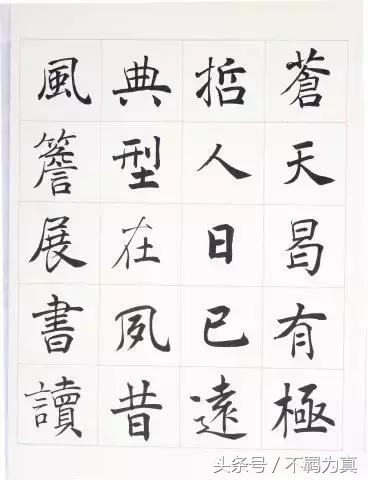 蒼天曷有極
哲人日已遠
典型在夙昔
風簷展書讀
头条号 / 不羁为真